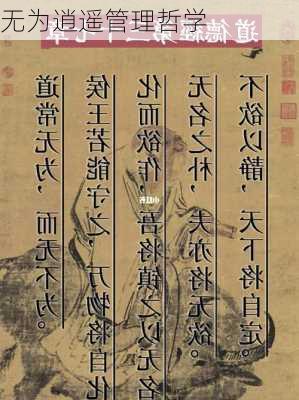 无为逍遥管理哲学
道德經第三十七章
道常无为，而无不为。
侯王若能守之，万物将自化
化而欲作，吾将镇之以无名
无名之朴，夫亦将无欲。
不欲以静，天下将自定。
小红书